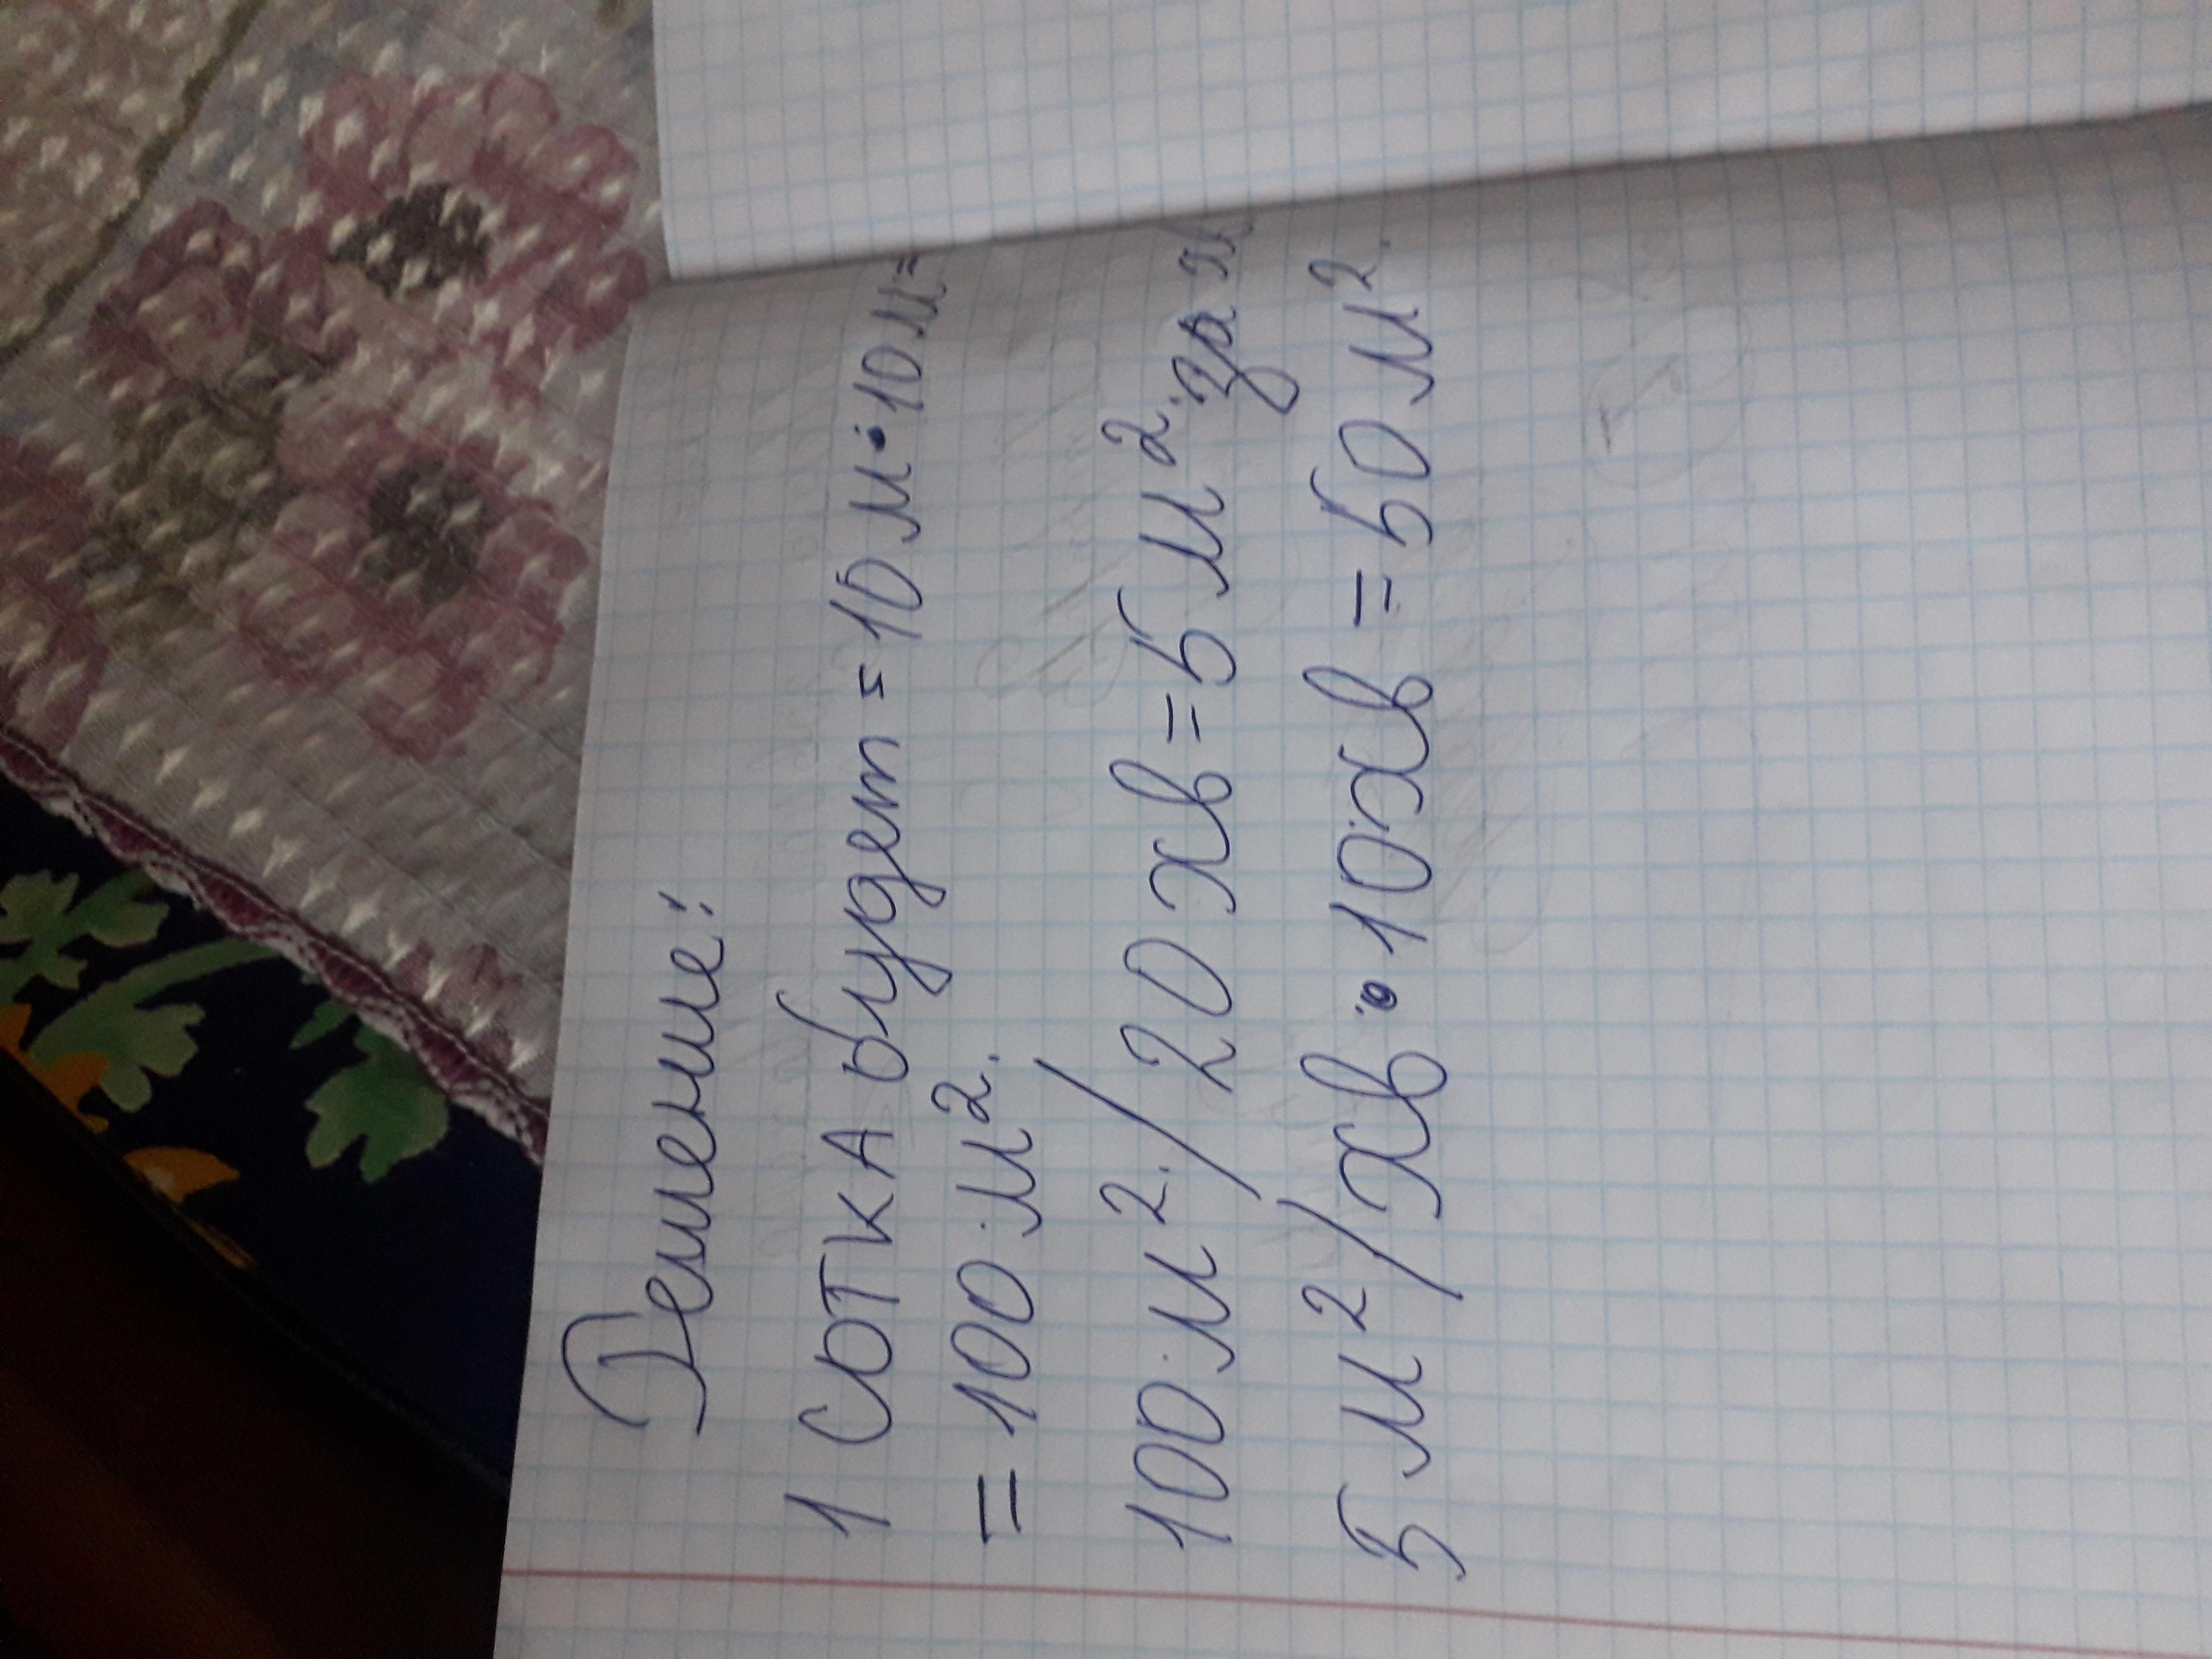 Решение:
1 сотка будет = 10 м · 10 м =
= 100 м².
100 м² / 20 хв = 5 м². за х
5 м² / хв · 10 хв = 50 м².